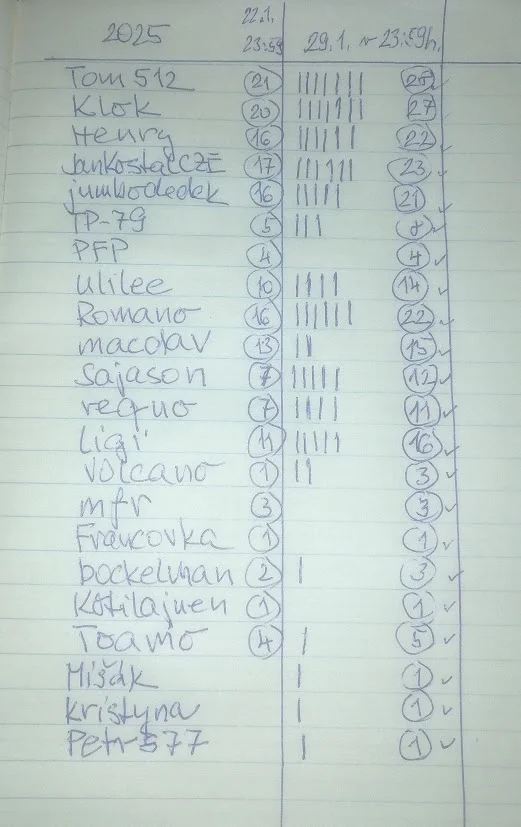 2025 22.1. 23:59 29.1. v 23:59h.
Tom 512 21 ||||||| 28
Klok 20 ||||||| 27
Henry 16 |||||| 22
JankostalCZE 17 |||||| 23
jumbodedek 16 ||||| 21
TP-79 5 ||| 8
PFP 4 4
ulilee 10 |||| 14
Romano 16 |||||| 22
macdav 13 || 15
Sajason 7 ||||| 12
requo 7 |||| 11
Ligi 11 ||||| 16
Volcano 1 || 3
mfr 3 3
Francovka 1 1
bockelman 2 | 3
Kotilajnen 1 1
Toamo 4 | 5
Mišák | 1
Kristyna | 1
Petr577 | 1